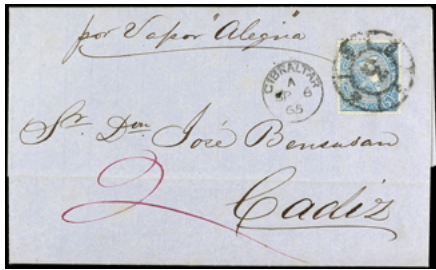 por Vapor "Alegria"
GIBRALTAR
A
SP 6
65
Sr. Don José Bensusan
2
Cadiz